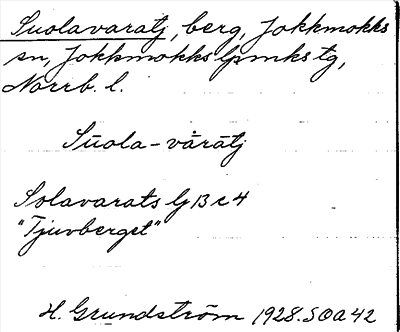 Suolavaratj, berg, Jokkmokks
sn, Jokkmokks lpmks tg,
Norrb. l.
Sūola-vārātj
Solavarats lj B c 4
"Tjuvberget"
H. Grundström 1928. SOA 42